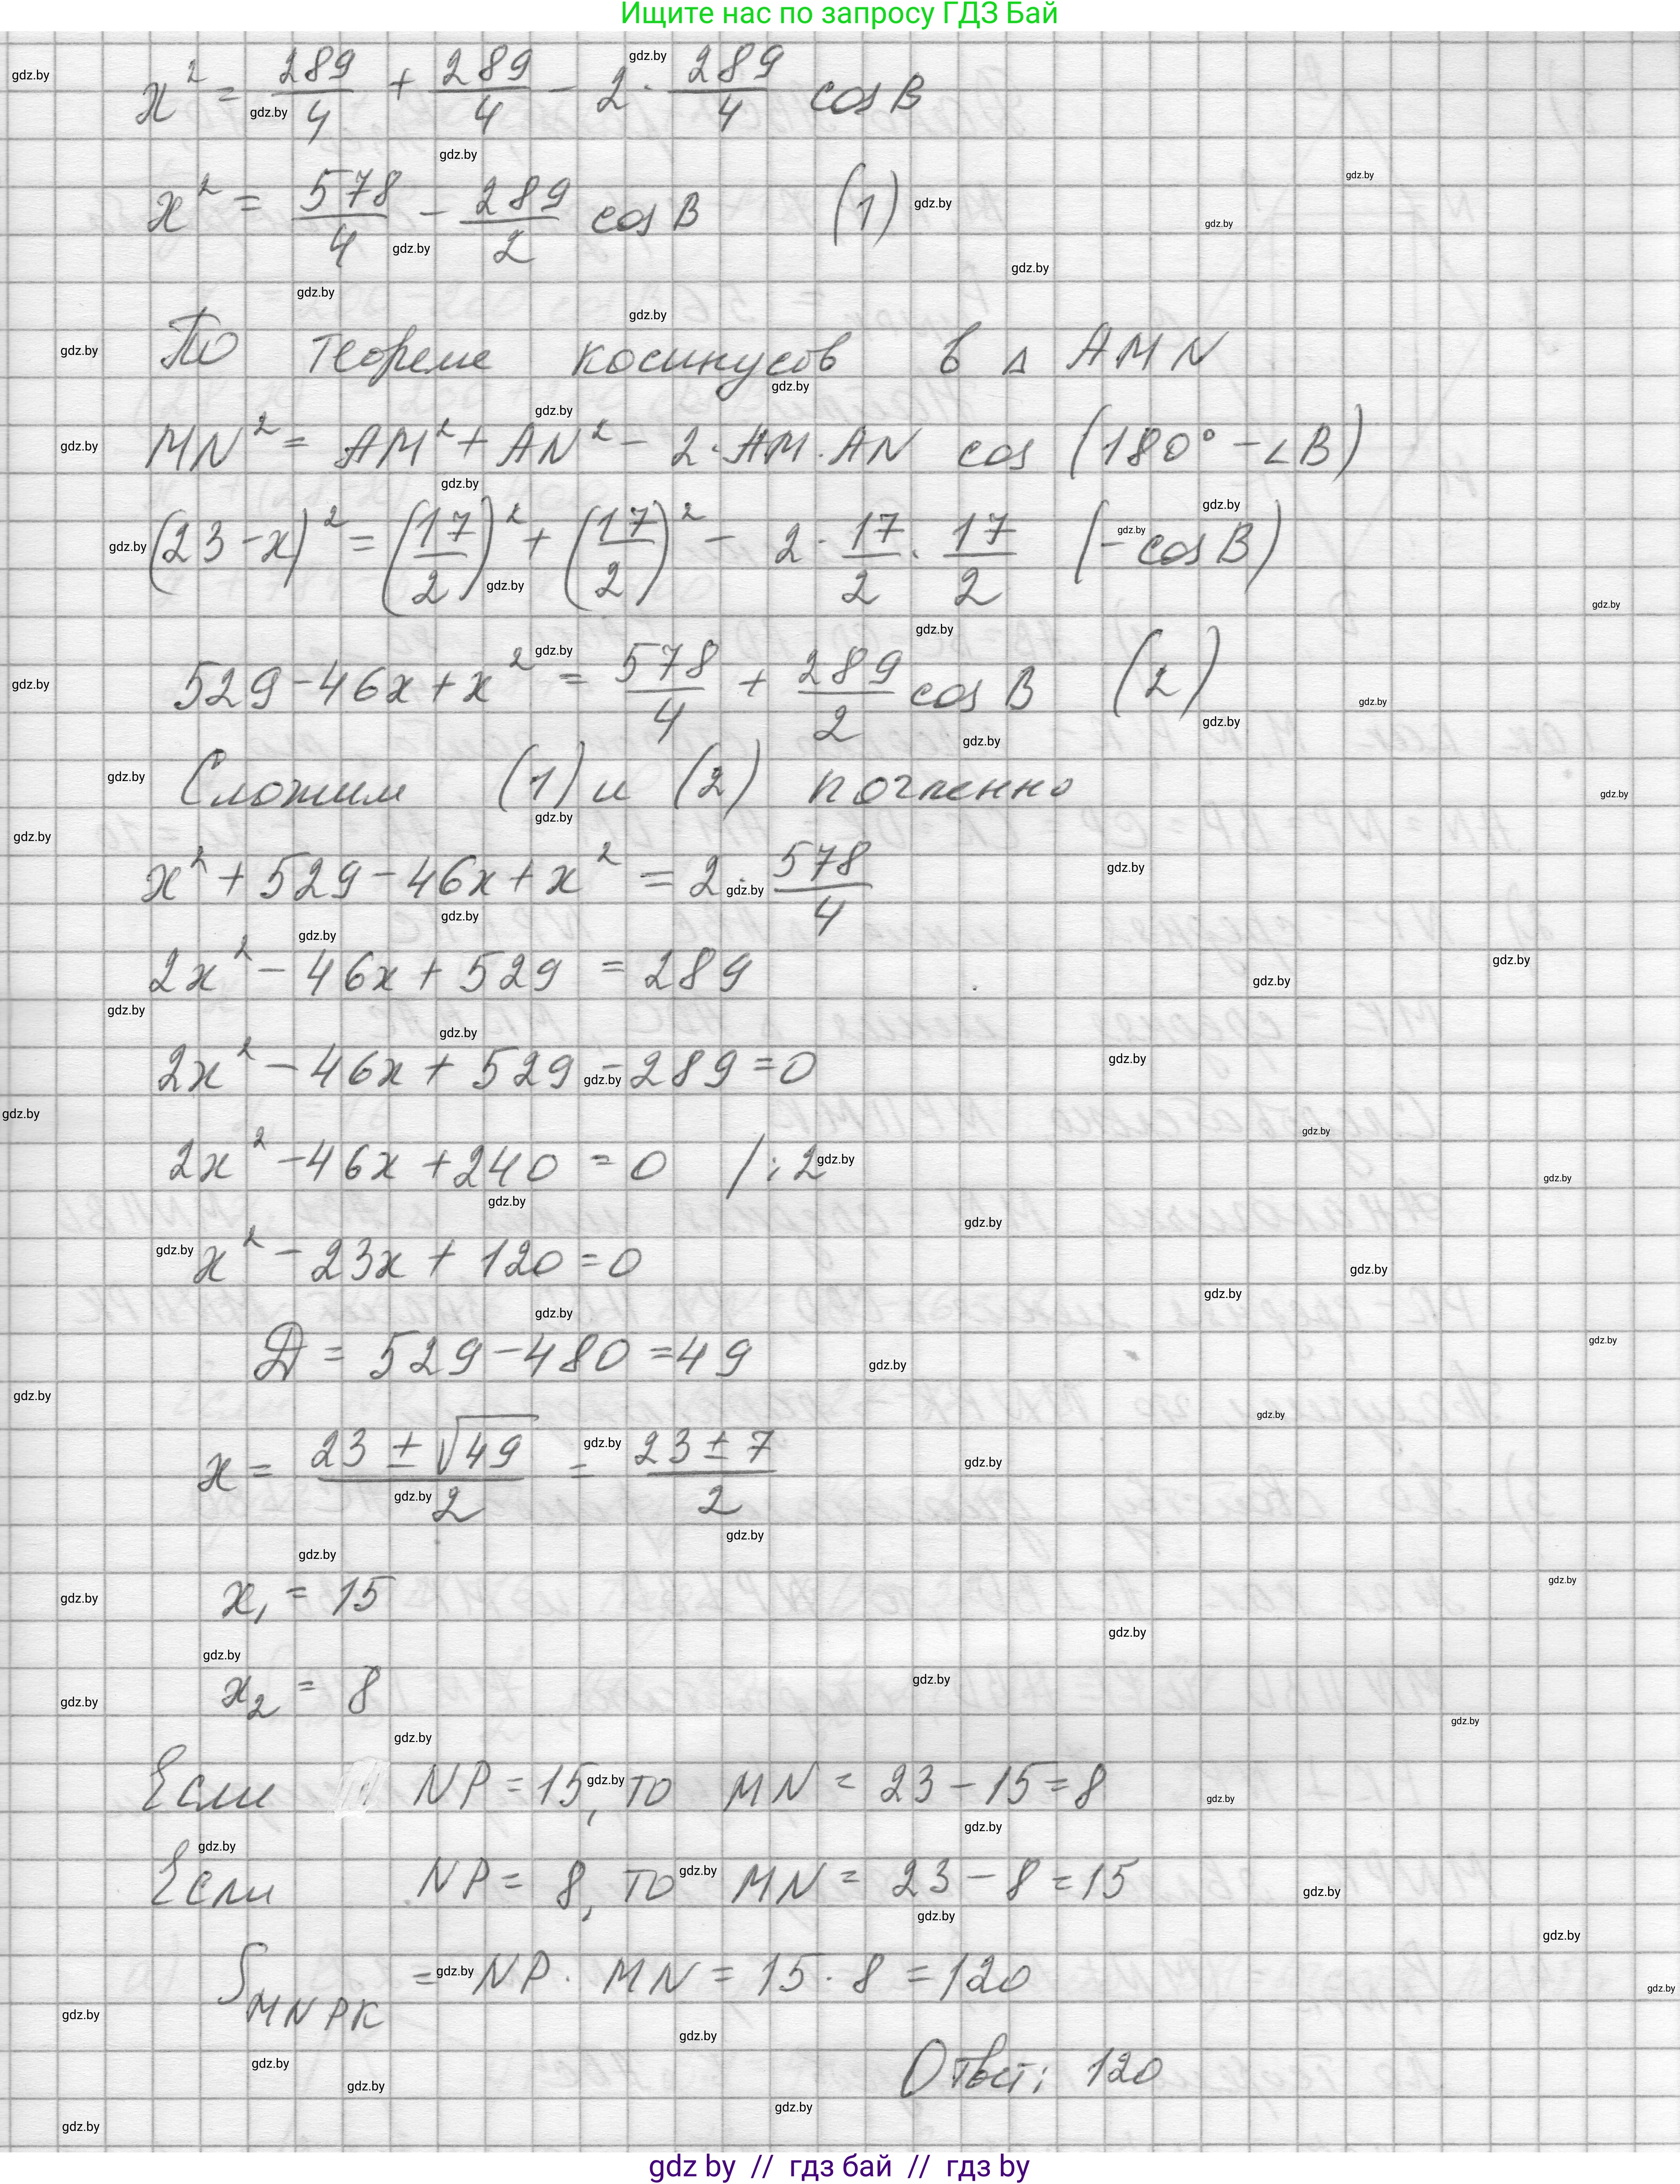 Ищите нас по запросу ГДЗ Бай
x² = 289/4 + 289/4 - 2 · 289/4 cos B
x² = 578/4 - 289/2 cos B (1)
По теореме косинусов в Δ AMN
MN² = AM² + AN² - 2 · AM · AN cos (180° - ∠B)
(23 - x)² = (17/2)² + (17/2)² - 2 · 17/2 · 17/2 (- cos B)
529 - 46x + x² = 578/4 + 289/2 cos B (2)
Сложим (1) и (2) почленно
x² + 529 - 46x + x² = 2 · 578/4
2x² - 46x + 529 = 289
2x² - 46x + 529 - 289 = 0
2x² - 46x + 240 = 0 / : 2
x² - 23x + 120 = 0
Д = 529 - 480 = 49
x = (23 ± √49)/2 = (23 ± 7)/2
x₁ = 15
x₂ = 8
Если NP = 15, то MN = 23 - 15 = 8
Если NP = 8, то MN = 23 - 8 = 15
S_MNPK = NP · MN = 15 · 8 = 120
Ответ: 120
gdz by // гдз бай // гдз by